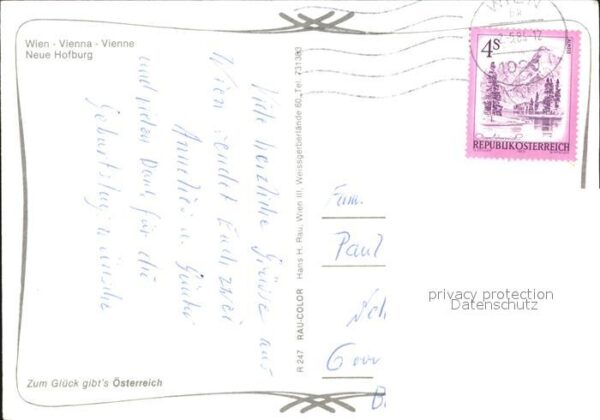 Wien - Vienna - Vienne
Neue Hofburg
Viele herzliche Grüsse aus
Wien sendet Euch zwei
Annelies u. Günter
und vielen Dank für die
Geburtstagswünsche
Zum Glück gibt's Österreich
R 247 RAU-COLOR Hans H. Rau, Wien III, Weissgerberlände 60, Tel. 731383
WIEN
1030
4 S
REPUBLIK ÖSTERREICH
Fam.
Paul
privacy protection
Datenschutz